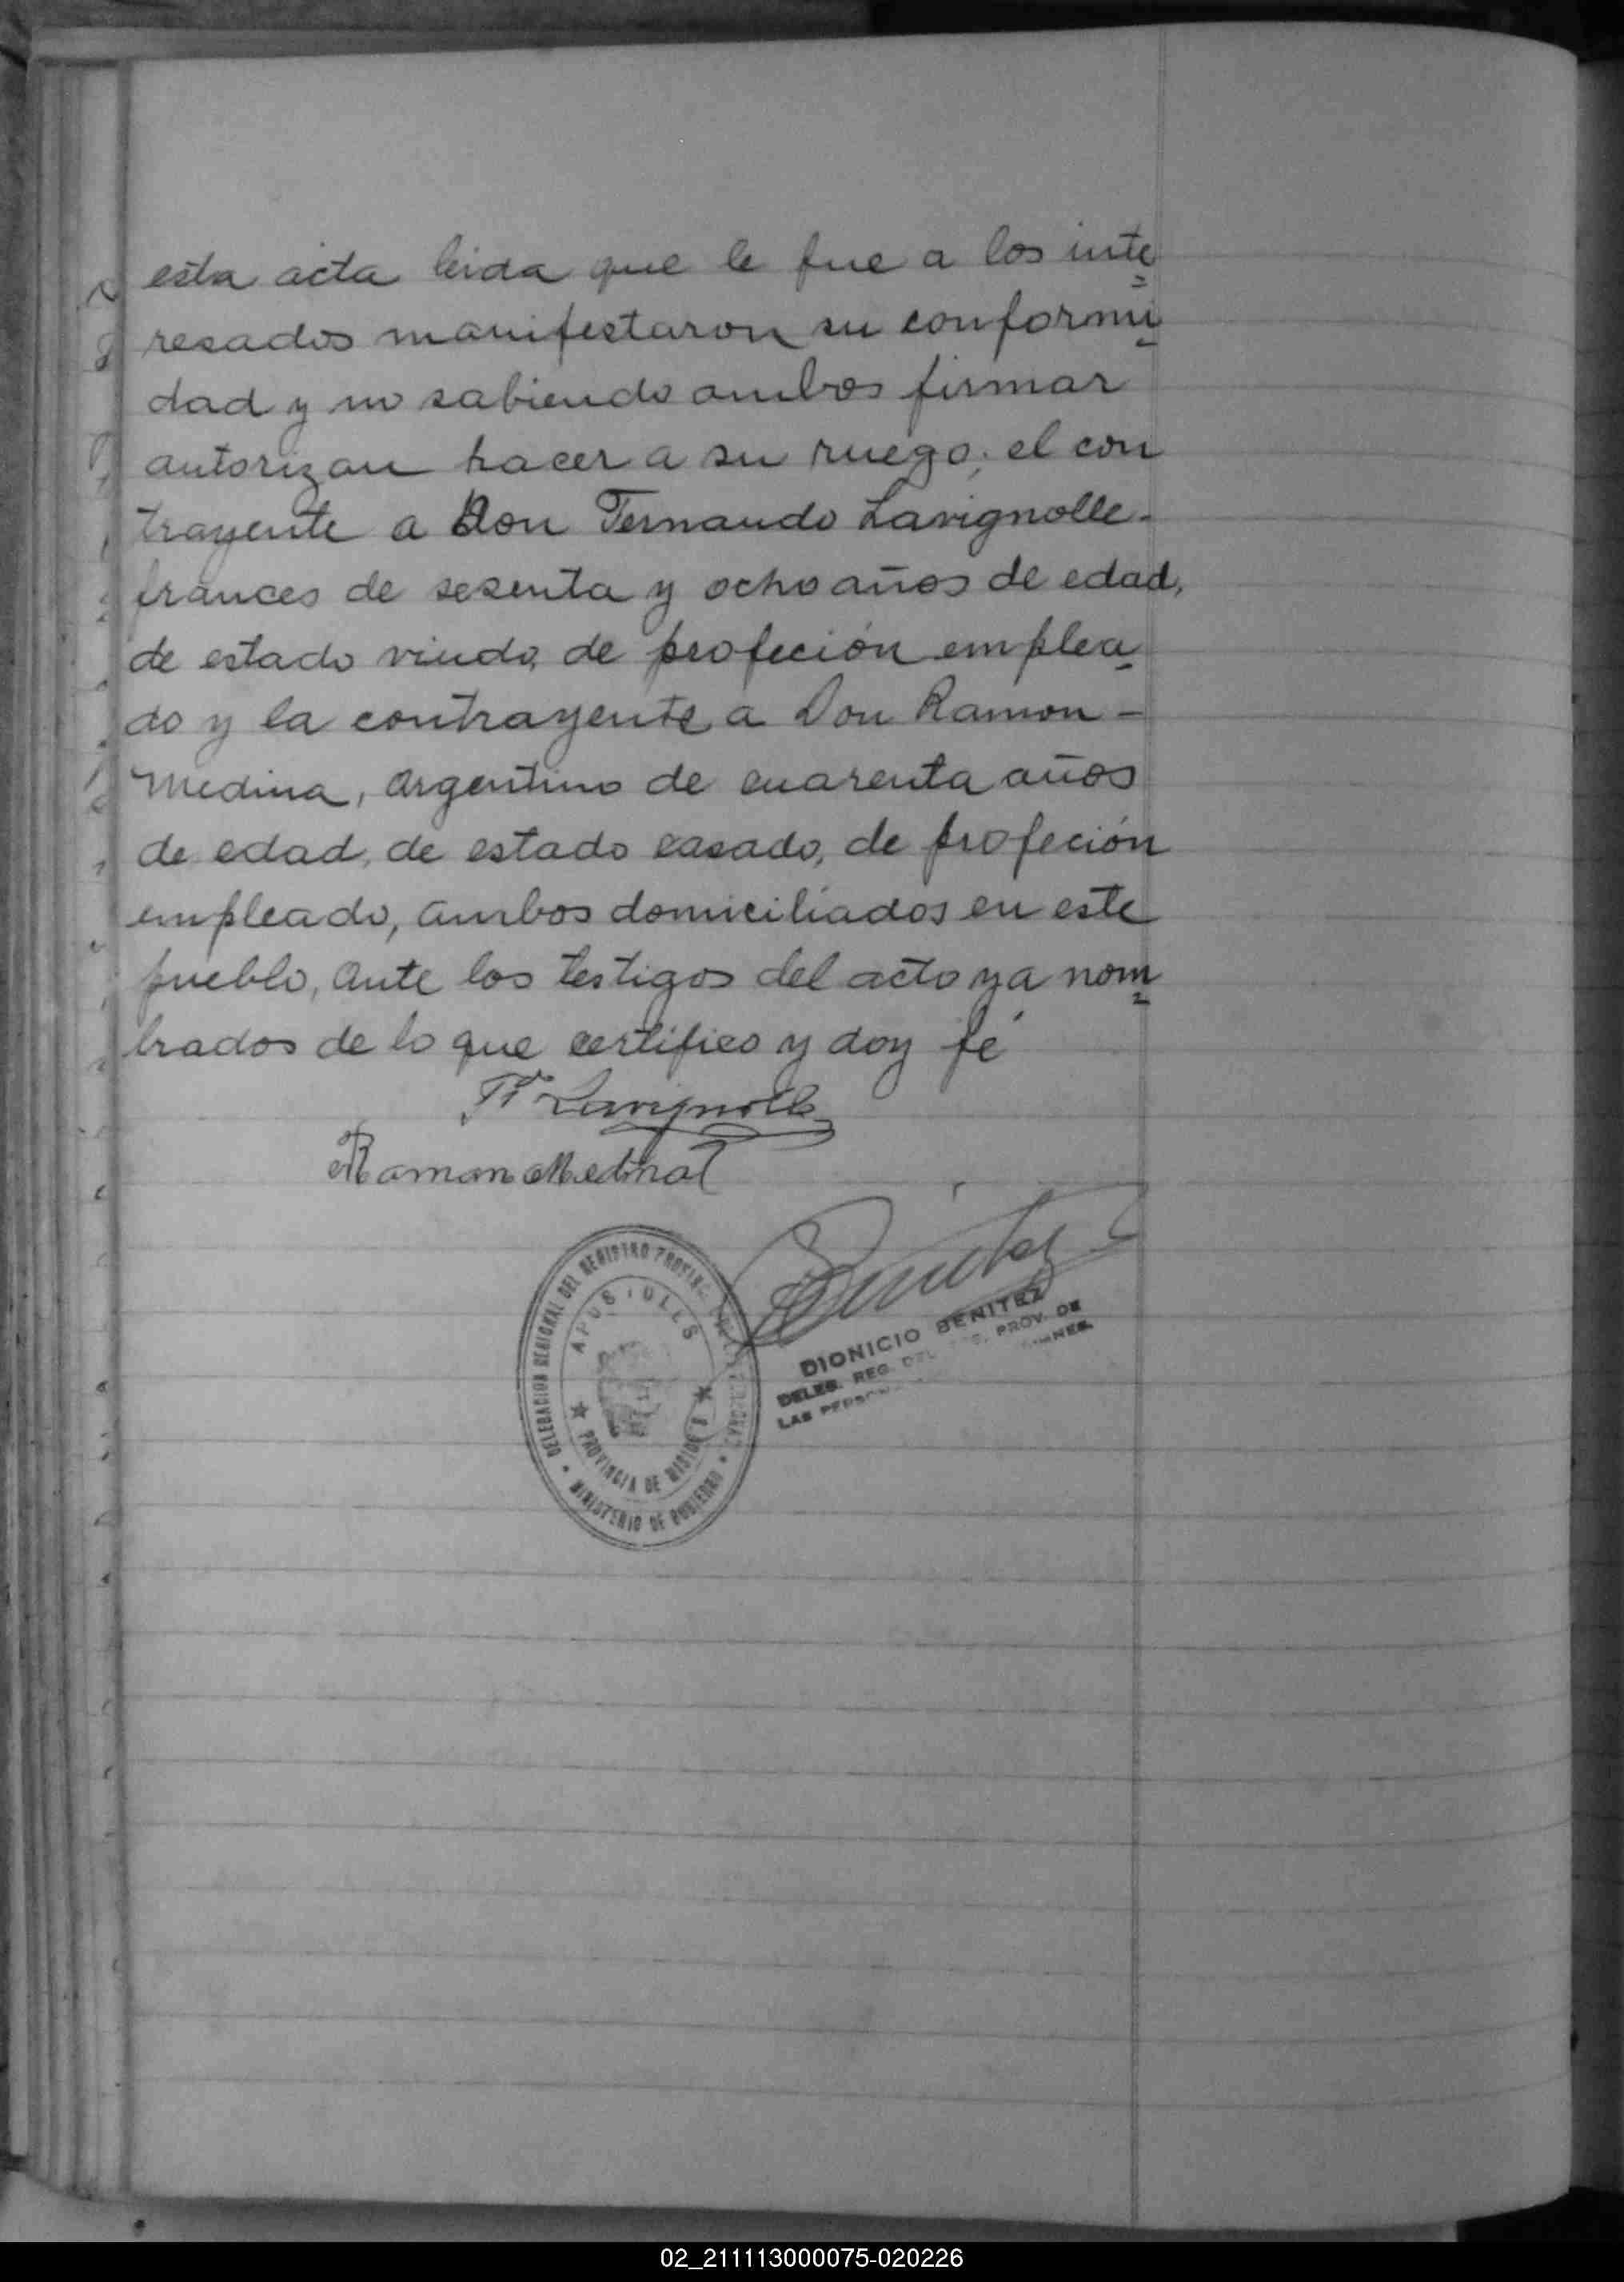 esta acta leida que le fue a los inte
resados manifestaron su conformi
dad y no sabiendo ambos firmar
autorizan hacer a su ruego; el con
trayente a Don Fernando Lavignolle-
frances de sesenta y ocho años de edad,
de estado viudo, de profeción emplea
do y la contrayente a Don Ramon -
Medina, Argentino de cuarenta años
de edad, de estado casado, de profeción
empleado, ambos domiciliados en este
pueblo, Ante los testigos del acto ya nom
brados de lo que certifico y doy fé
F Lavignolle
Ramon Medina
Benitez
DELEGACION REGIONAL DEL REGISTRO PROVINC
APOSTOLES
PROVINCIA DE MISIONES
MINISTERIO DE GOBIERNO
DIONICIO BENITEZ
DELEG. REG. DEL PROV. DE
LAS
02_211113000075-020226